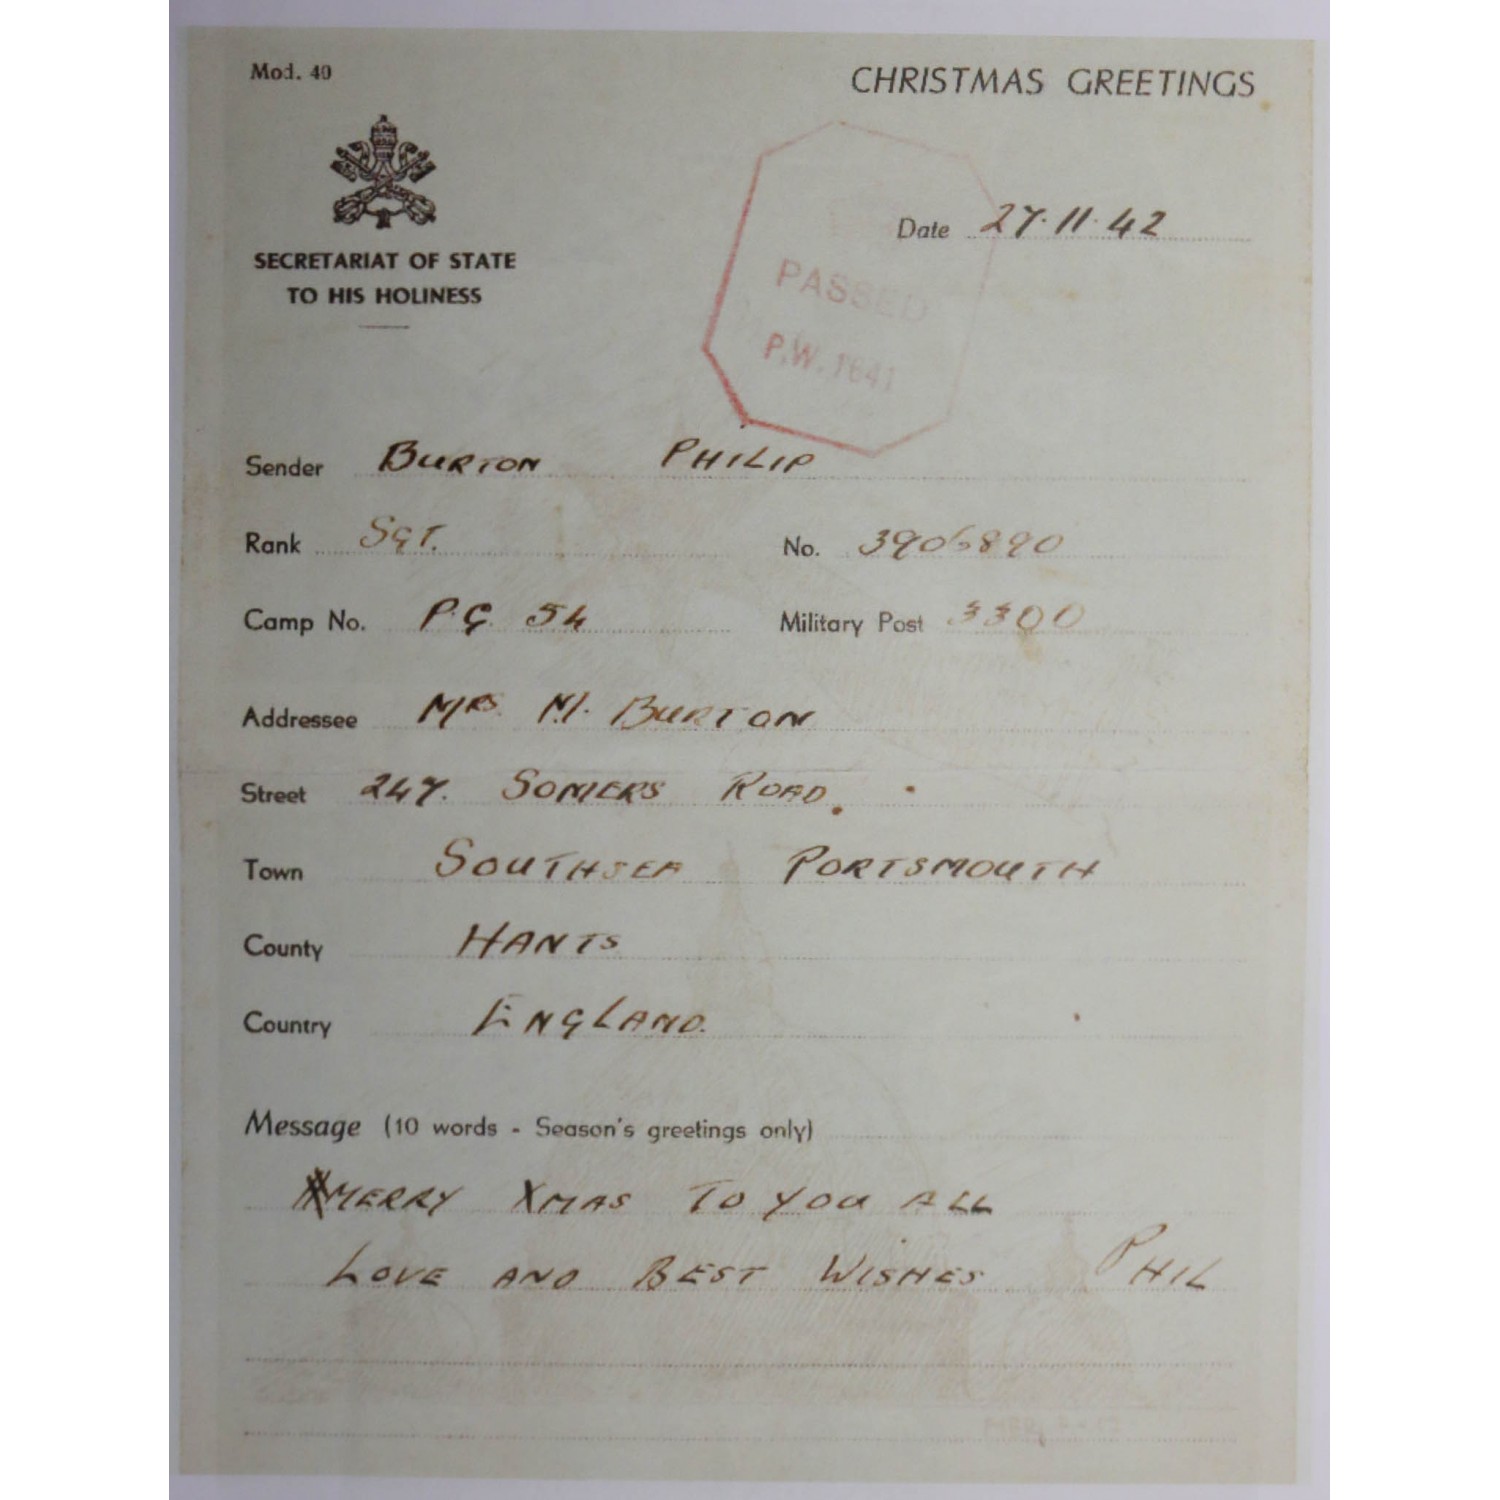 Mod. 40
CHRISTMAS GREETINGS
SECRETARIAT OF STATE
TO HIS HOLINESS
Date 27.11.42
PASSED
P.W. 1641
Sender BURTON PHILIP
Rank SGT. No. 3906890
Camp No. P.G. 54 Military Post 3300
Addressee MRS. M. BURTON
Street 247. SOMERS ROAD.
Town SOUTHSEA PORTSMOUTH
County HANTS
Country ENGLAND.
Message (10 words - Season's greetings only)
MERRY XMAS TO YOU ALL
LOVE AND BEST WISHES PHIL